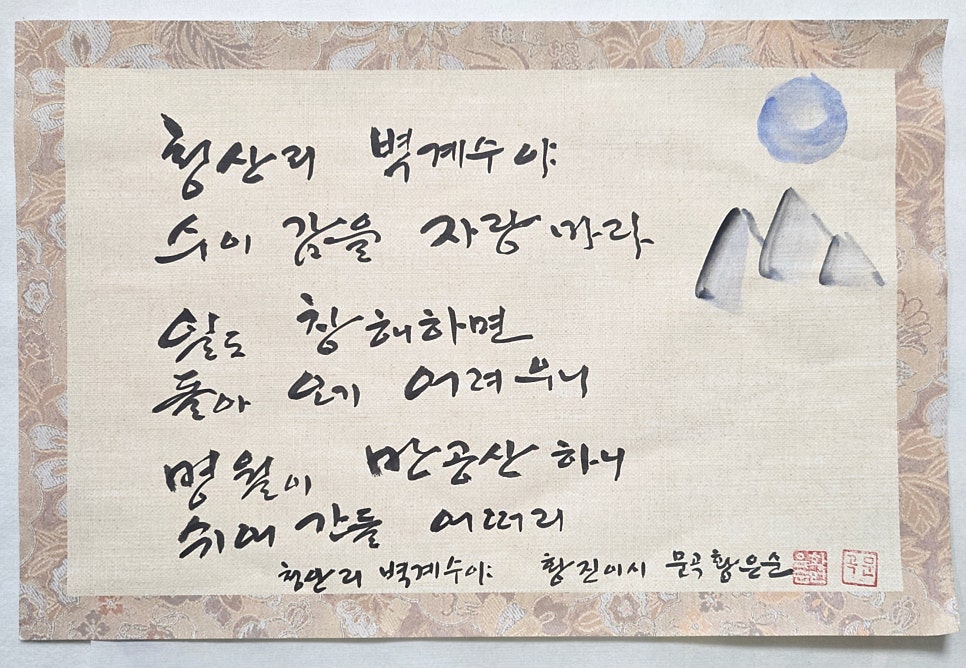 청산리 벽계수야
수이 감을 자랑 마라
일도 창해하면
돌아 오기 어려우니
명월이 만공산 하니
쉬어 간들 어떠리
청산리 벽계수야 황진이시 문곡 황은순
문곡